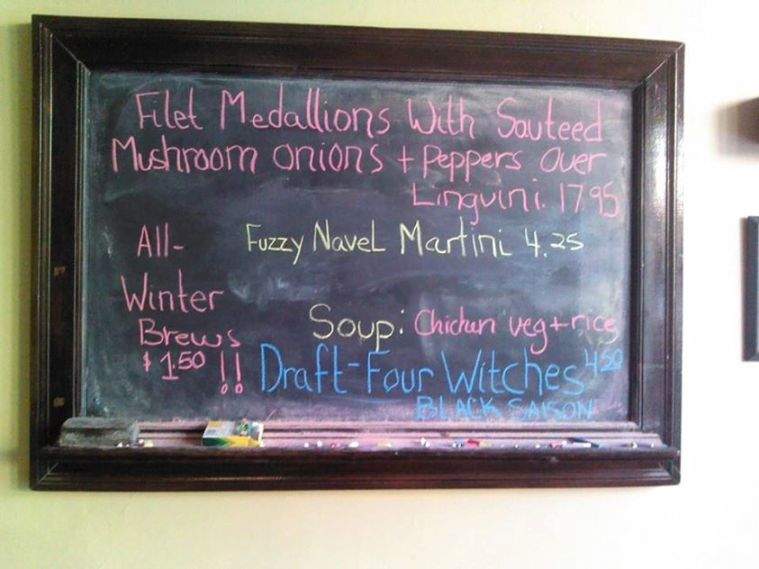 Filet Medallions With Sauteed
Mushroom onions + Peppers over
Linguini. 17.95
All-
Winter
Brews
$1.50 !!
Fuzzy Navel Martini 4.25
Soup: Chicken veg + rice
Draft-Four Witches 4.50
BLACK SAISON